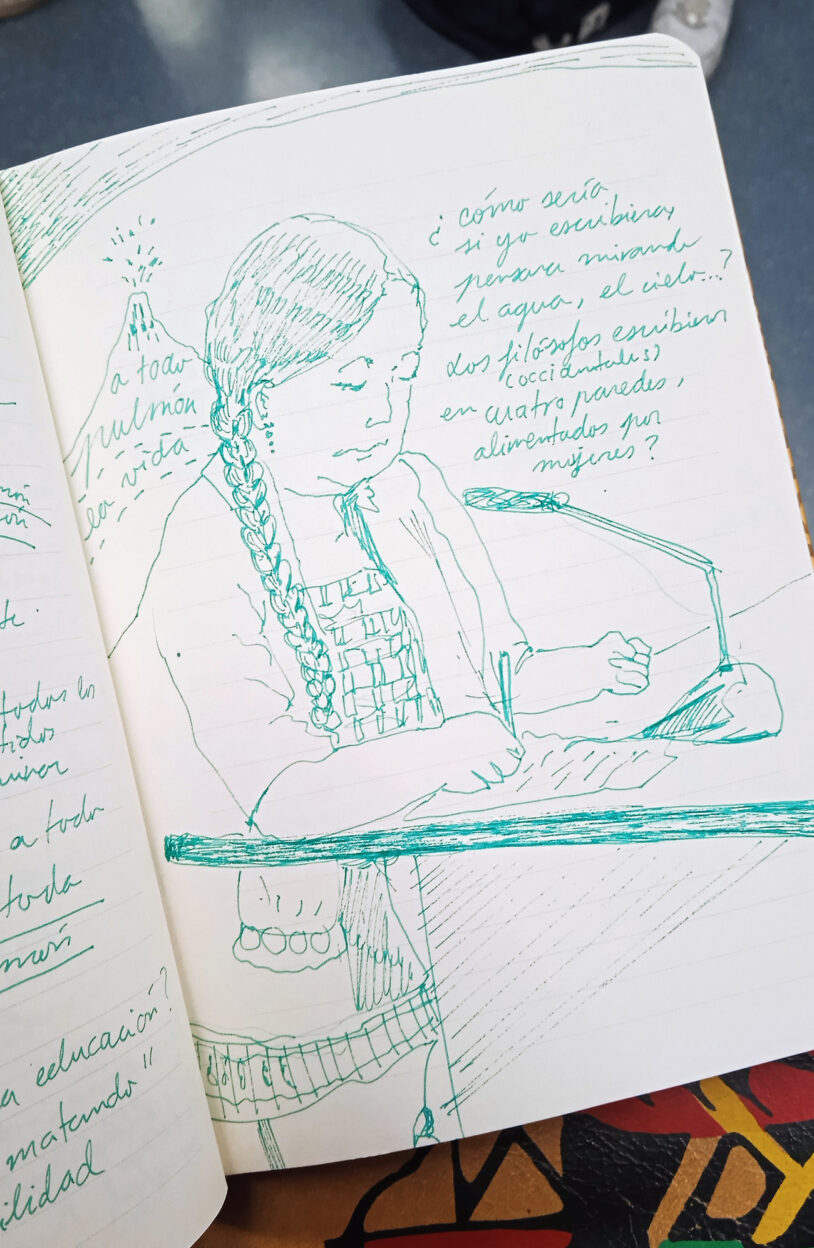 todos los
a todo
toda
educación?
matando"
a todo
pulmón
la vida
¿cómo sería
si yo escribiera,
pensara mirando
el agua, el cielo...?
Los filósofos escribieron
(occidentales)
en cuatro paredes,
alimentados por
mujeres?